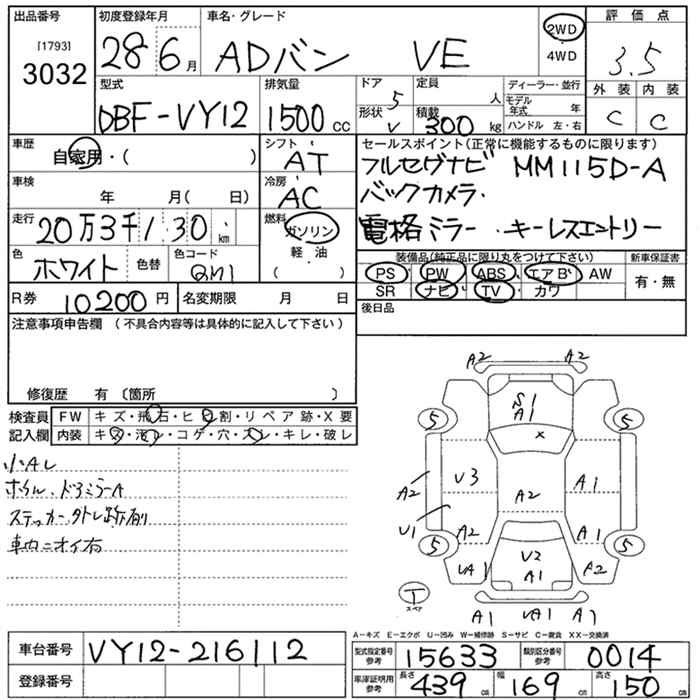 出品番号
[1793]
3032
初度登録年月
28 6月
車名・グレード
ADバン VE
2WD
4WD
評価点
3.5
外装 内装
C C
型式
DBF-VY12
排気量
1500 cc
ドア
5
形状
V
定員
人
積載
300 kg
ディーラー・並行
モデル年式 年
ハンドル 左・右
車歴
自家用・( )
車検
年 月( 日)
走行
20万3千130 km
色
ホワイト
色替
色コード
QM1
シフト
AT
冷房
AC
燃料
ガソリン
軽・油
( )
セールスポイント(正常に機能するものに限ります)
フルセグナビ MM115D-A
バックカメラ・
電格ミラー・キーレスエントリー
装備品(純正品に限り丸をつけて下さい)
PS PW ABS エアB AW
SR ナビ TV カワ
新車保証書
有・無
R券
10200円
名変期限 月 日
後日品
注意事項申告欄 (不具合内容等は具体的に記入して下さい)
修復歴 有 〔箇所 〕
検査員記入欄
FW キズ・飛石・ヒビ割・リペア跡・X要
内装 キズ・汚レ・コゲ・穴・スレ・キレ・破レ
小AU
ホイル・ドアミラーA
ステッカー外し跡有
車内ニオイ有
A2 A2
S1
A1
5 5
X
U3 A1
A2 A2
U1
A2 A1
5 5
UA1 U2 A2
A1
T
スペア
A1 UA1 A1
A-キズ E-エクボ U-凹み W-補修跡 S-サビ C-腐食 XX-交換済
車台番号
VY12-216112
登録番号
型式指定番号参考
15633
類別区分番号参考
0014
車庫証明用参考
長さ
439 cm
幅
169 cm
高さ
150 cm